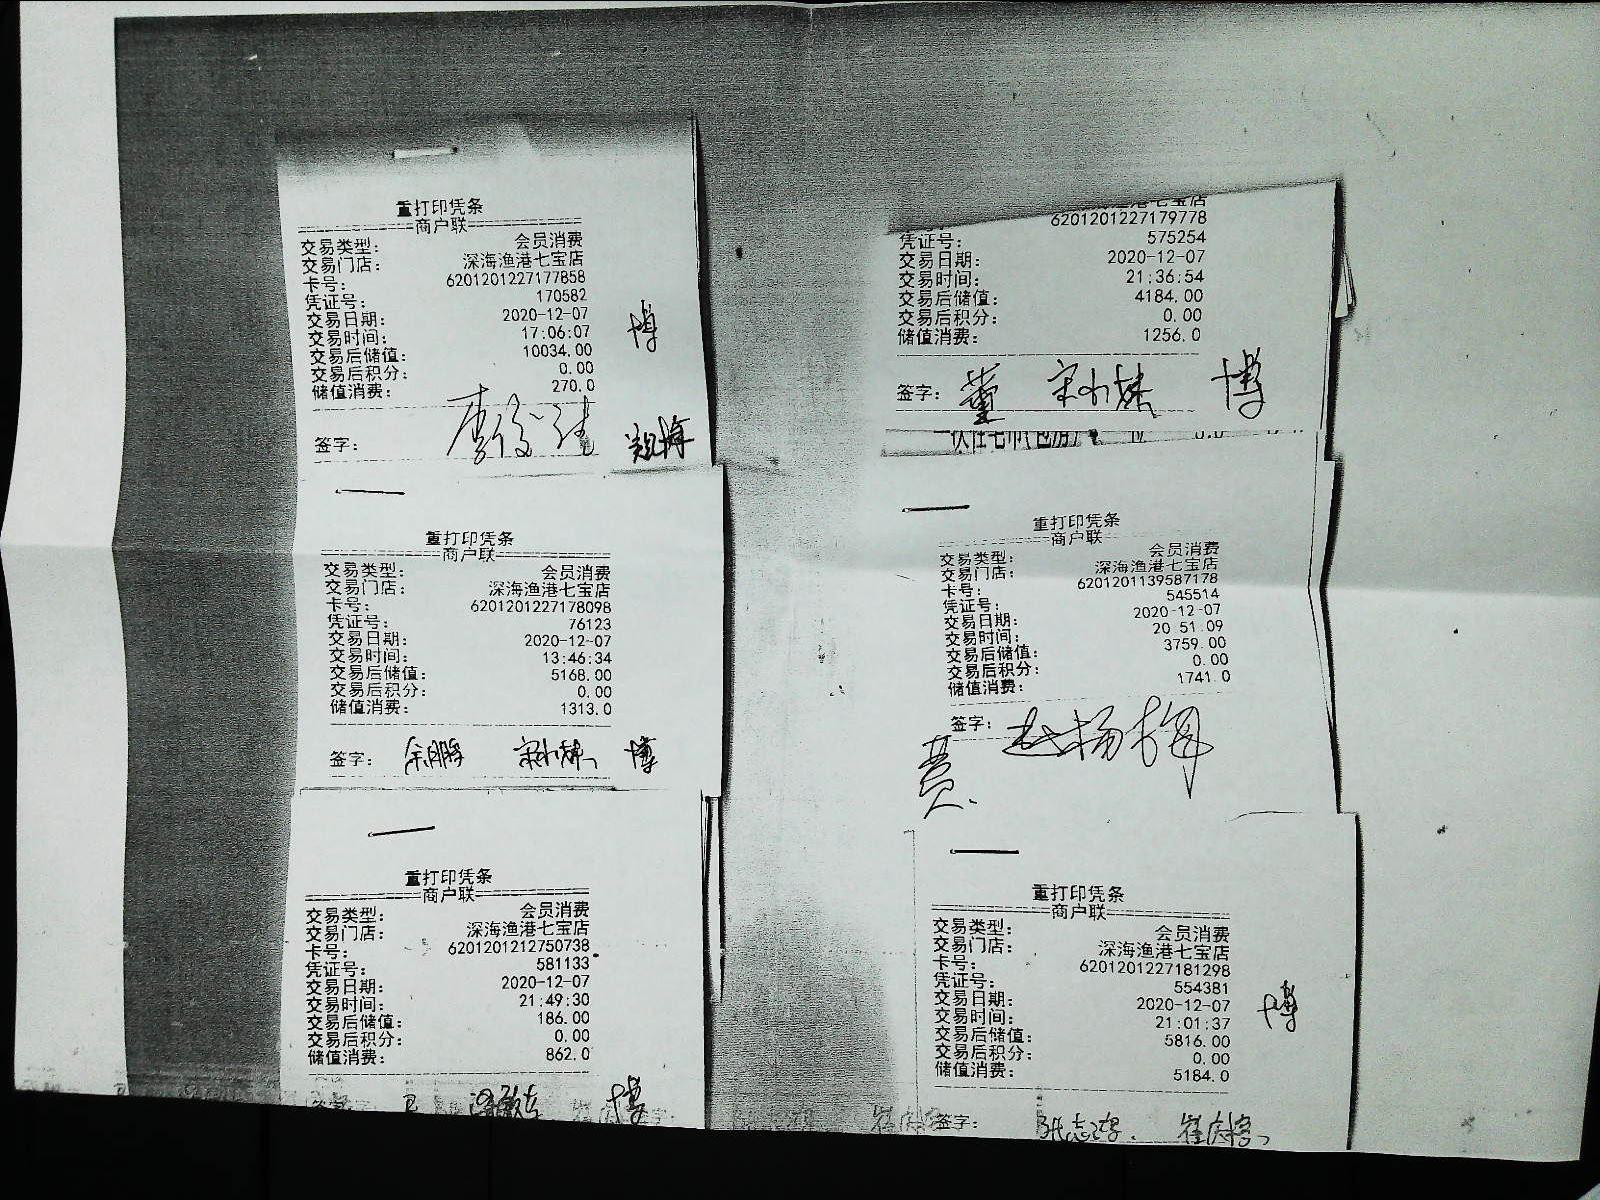 重打印凭条
商户联
交易类型: 会员消费
交易门店: 深海渔港七宝店
卡号: 6201201227177858
凭证号: 170582
交易日期: 2020-12-07
交易时间: 17:06:07
交易后储值: 10034.00
交易后积分: 0.00
储值消费: 270.0
博
签字:
重打印凭条
商户联
交易类型: 会员消费
交易门店: 深海渔港七宝店
卡号: 6201201227178098
凭证号: 76123
交易日期: 2020-12-07
交易时间: 13:46:34
交易后储值: 5168.00
交易后积分: 0.00
储值消费: 1313.0
签字: 博
重打印凭条
商户联
交易类型: 会员消费
交易门店: 深海渔港七宝店
卡号: 6201201212750738
凭证号: 581133
交易日期: 2020-12-07
交易时间: 21:49:30
交易后储值: 186.00
交易后积分: 0.00
储值消费: 862.0
博
渔港七宝店
6201201227179778
凭证号: 575254
交易日期: 2020-12-07
交易时间: 21:36:54
交易后储值: 4184.00
交易后积分: 0.00
储值消费: 1256.0
签字: 董 博
重打印凭条
商户联
交易类型: 会员消费
交易门店: 深海渔港七宝店
卡号: 6201201139587178
凭证号: 545514
交易日期: 2020-12-07
交易时间: 20 51.09
交易后储值: 3759.00
交易后积分: 0.00
储值消费: 1741.0
签字: 赵杨梅
重打印凭条
商户联
交易类型: 会员消费
交易门店: 深海渔港七宝店
卡号: 6201201227181298
凭证号: 554381
交易日期: 2020-12-07
交易时间: 21:01:37
交易后储值: 5816.00
交易后积分: 0.00
储值消费: 5184.0
博
签字: